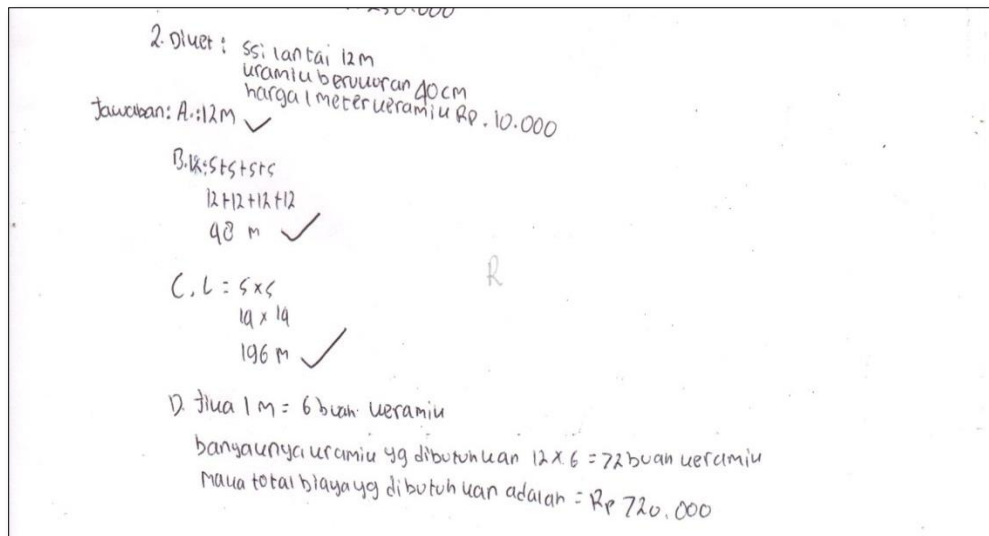 250.000
2. Diket : Ssi lantai 12m
kramik berukuran 40cm
harga 1 meter keramik Rp. 10.000
Jawaban: A.:12M ✓
B.K:S+S+S+S
12+12+12+12
48 m ✓
C. L = S×S
14 × 14
196 m ✓
R
D. Jika 1 M = 6 buah keramik
banyaknya kramik yg dibutuhkan 12 × 6 = 72 buah keramik
Maka total biaya yg dibutuhkan adalah = Rp 720.000